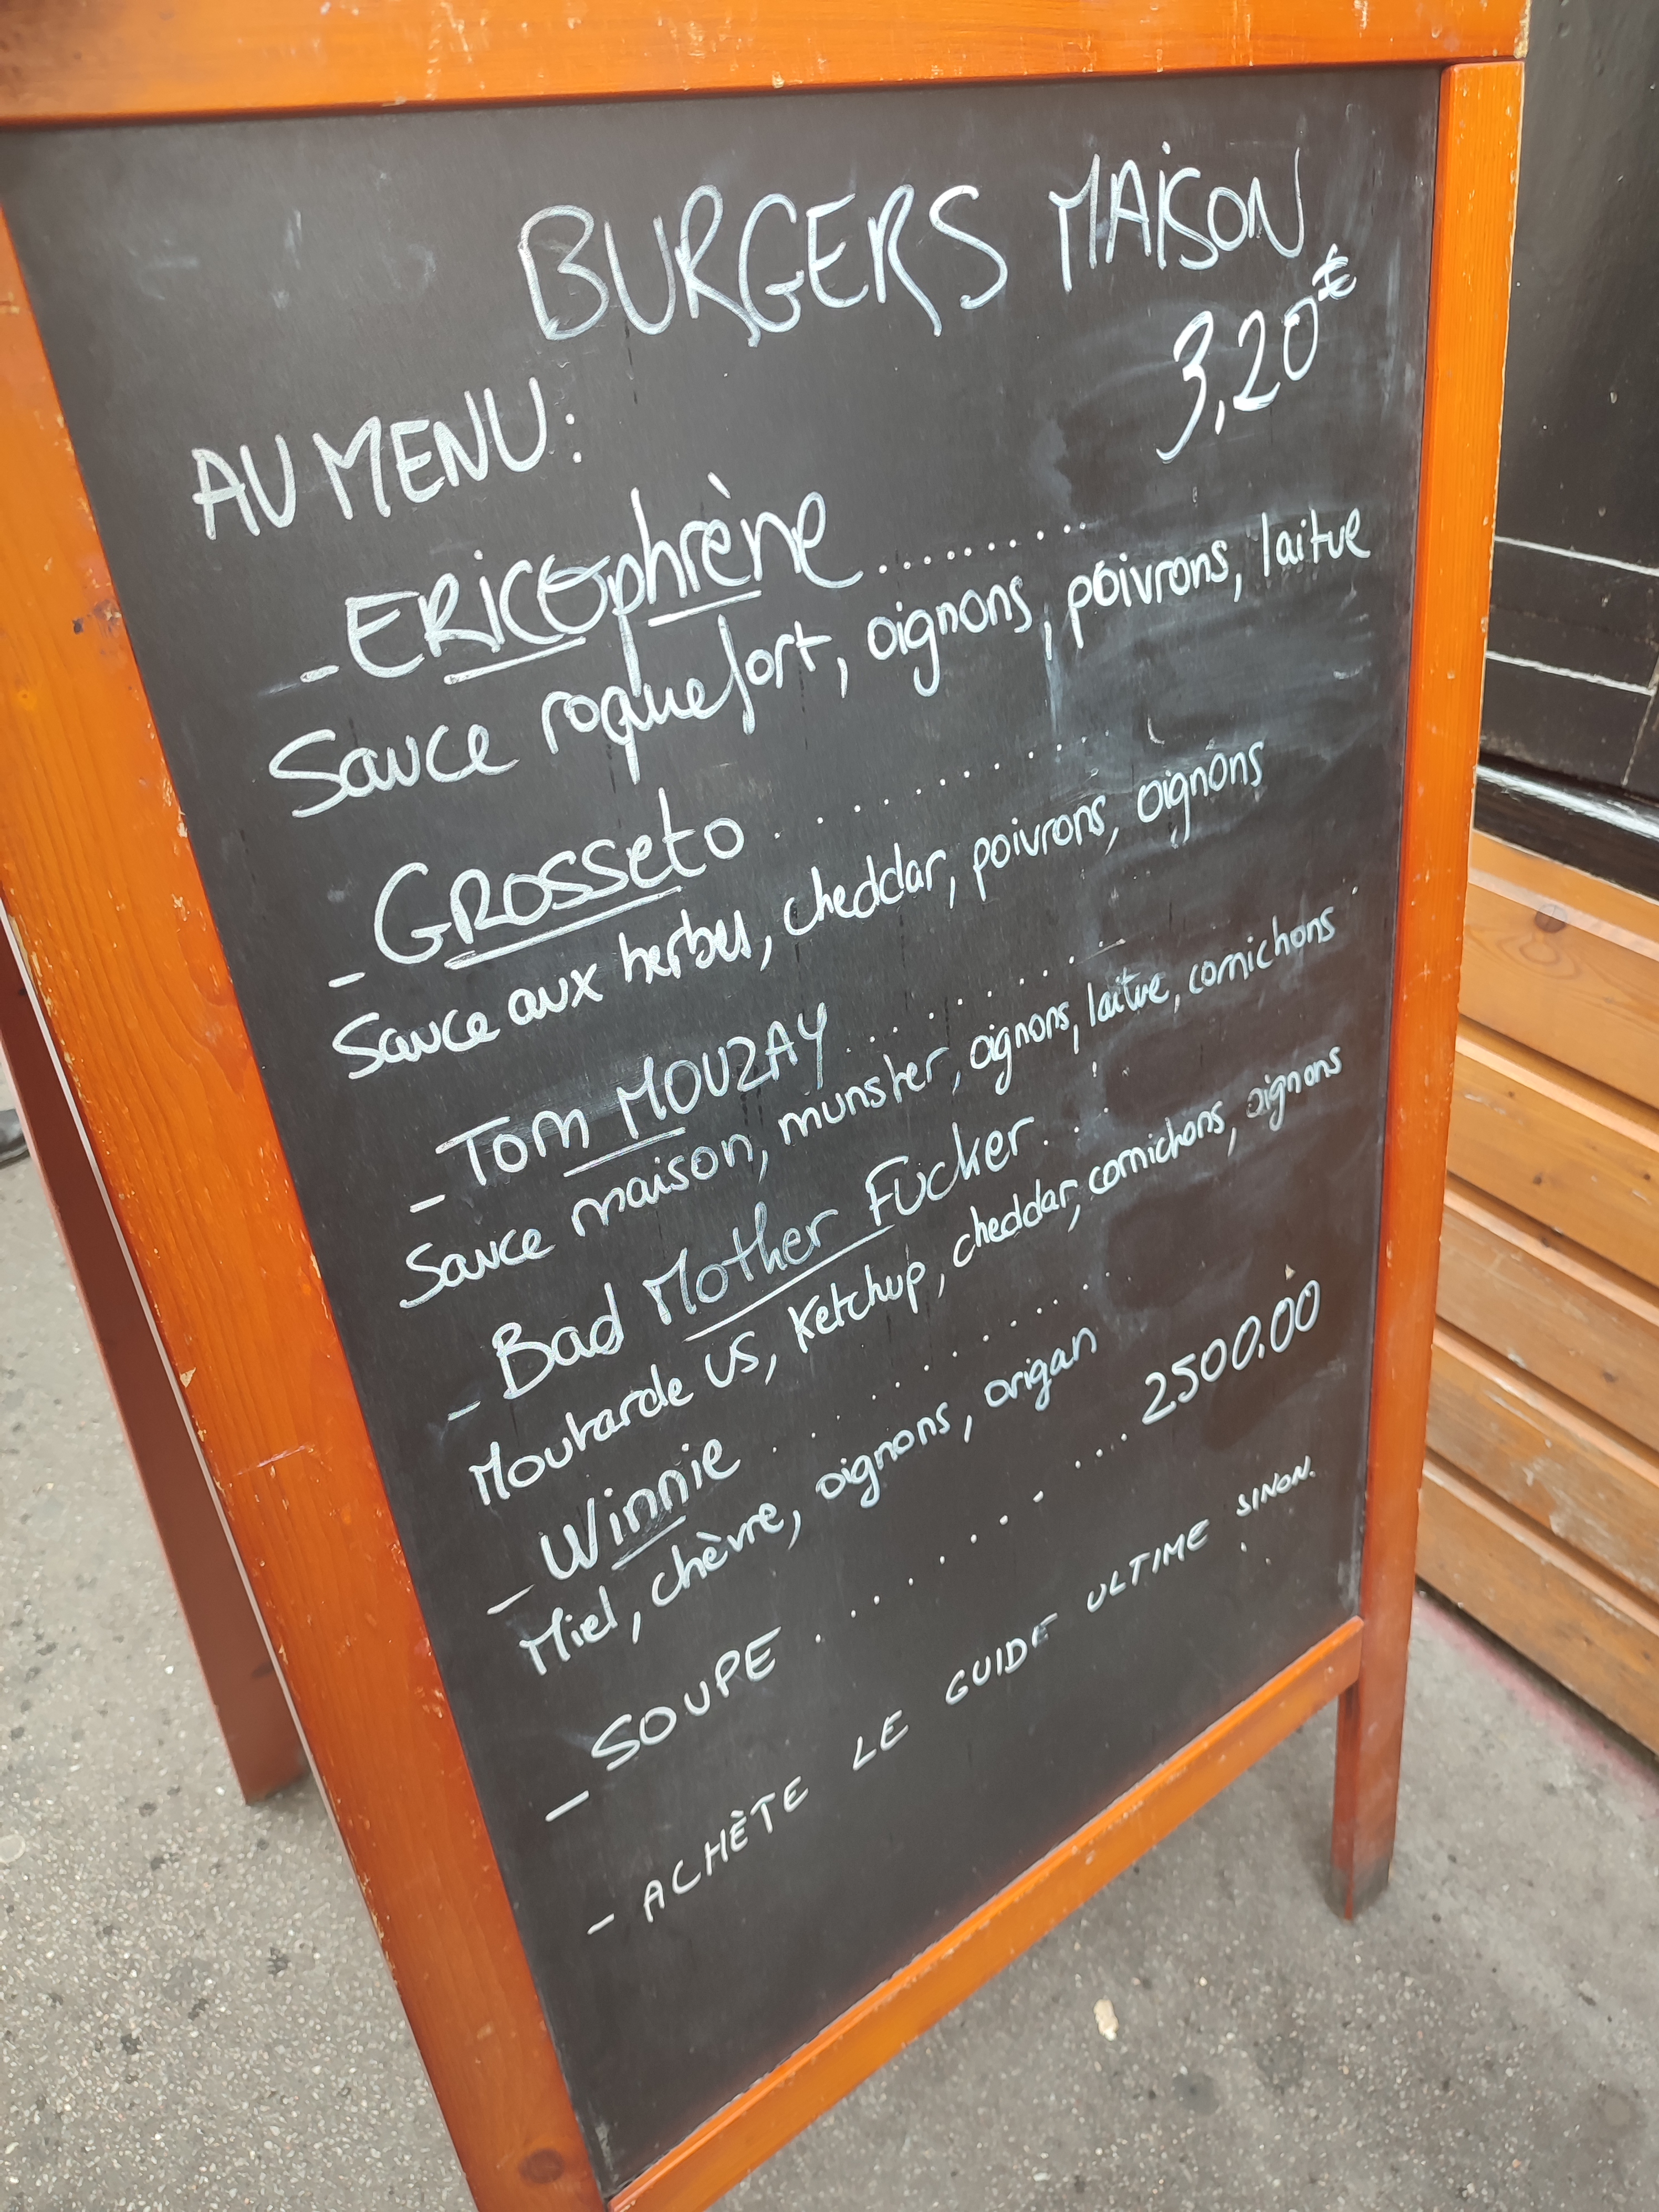 BURGERS MAISON
3,20€
AU MENU:
- ERICOphrène..........
Sauce roquefort, oignons, poivrons, laitue
- GROSSeto..........
Sauce aux herbes, cheddar, poivrons, oignons
- Tom MOUZAY..........
Sauce maison, munster, oignons, laitue, cornichons
- Bad Mother Fucker...
Moutarde US, Ketchup, cheddar, cornichons, oignons
- Winnie..........
Miel, chèvre, oignons, origan
- SOUPE.............2500.00
- ACHÈTE LE GUIDE ULTIME SINON.